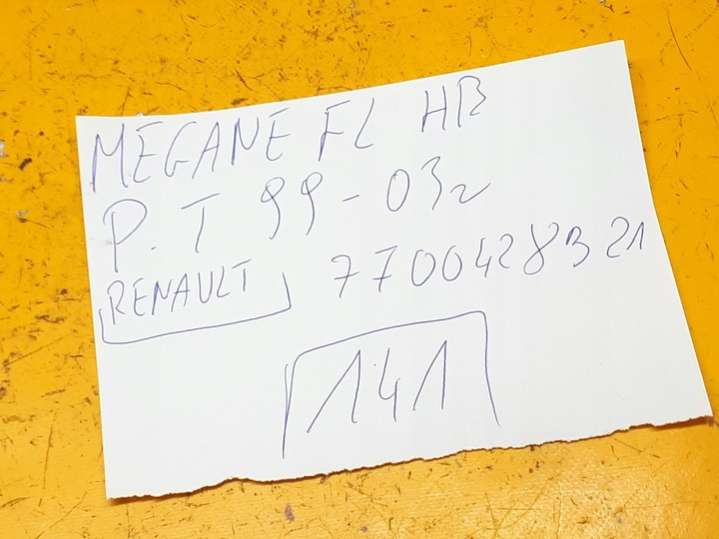 MEGANE FL HB
P.T 99-03r
RENAULT 7700428321
141